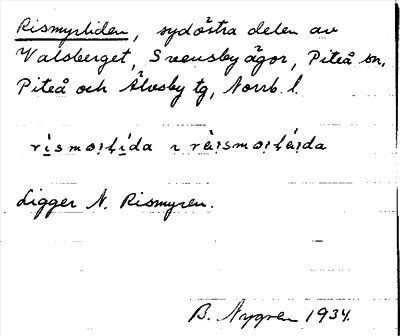 Rismyrliden, sydöstra delen av
Valsberget, Svensbyägor, Piteå sn,
Piteå och Älvsby tg, Norrb. l.
Ligger N. Rismyren.
B. Nygren 1934.